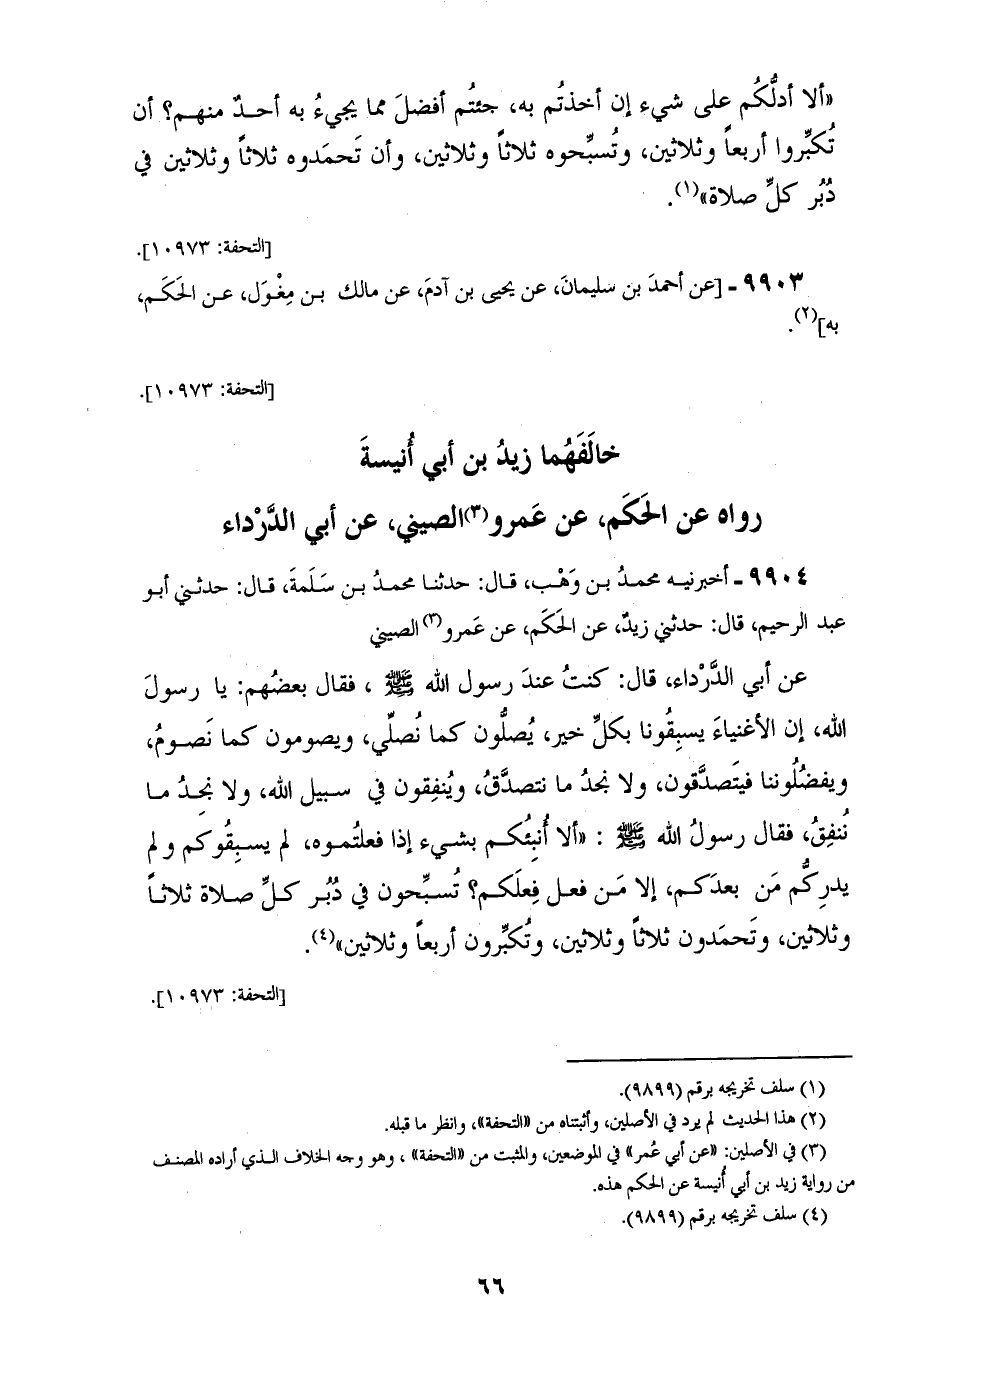 «ألا أدلُّكُم على شيء إن أخذتُم به، جئتُم أفضلَ مما يجيءُ به أحـدٌ منهـم؟ أن
تُكبِّروا أربعاً وثلاثين، وتُسبِّحوه ثلاثاً وثلاثين، وأن تَحمَدوه ثلاثاً وثلاثين في
دُبُر كلِّ صلاة»(١).
[التحفة: ١٠٩٧٣].
٩٩٠٣ ـ [عن أحمدَ بن سليمانَ، عن يحيى بن آدمَ، عن مالك بـن مِغْـوَل، عـن الحَكَـم،
به](٢).
[التحفة: ١٠٩٧٣].
خالَفَهُما زيدُ بن أبي أُنيسةَ
رواه عن الحَكَم، عن عَمرو(٣)الصيني، عن أبي الدَّرْداء
٩٩٠٤ ـ أخبرنيـه محمدُ بـن وَهْـب، قـال: حدثنـا محمدُ بـن سَـلَمةَ، قـال: حدثـني أبـو
عبد الرحيم، قال: حدثني زيدٌ، عن الحَكَم، عن عَمرو(٣) الصيني
عن أبي الدَّرْداء، قال: كنتُ عندَ رسول الله ﷺ ، فقال بعضُهم: يا رسولَ
الله، إن الأغنياءَ يسبِقُونا بكلِّ خير، يُصلُّون كما نُصلِّي، ويصومون كما نَصـومُ،
ويفضُلُوننا فيَتصدَّقون، ولا نجدُ ما نتصدَّقُ، ويُنفِقون في سبيل الله، ولا نجِـدُ مـا
نُنفِقُ، فقال رسولُ الله ﷺ : «ألا أُنبِئُكـم بشـيء إذا فعلتُمـوه، لم يسـبِقُوكم ولم
يدرِكُّم مَن بعدَكـم، إلا مَـن فعـل فِعلَكـم؟ تُسـبِّحون في دُبُـر كـلِّ صـلاة ثلاثـاً
وثلاثين، وتَحمَدون ثلاثاً وثلاثين، وتُكبِّرون أربعاً وثلاثين»(٤).
[التحفة: ١٠٩٧٣].
(١) سلف تخريجه برقم (٩٨٩٩).
(٢) هذا الحديث لم يرد في الأصلين، وأثبتناه من «التحفة»، وانظر ما قبله.
(٣) في الأصلين: «عن أبي عُمر» في الموضعين، والمثبت من «التحفة» ، وهو وجه الخلاف الـذي أراده المصنـف
من رواية زيد بن أبي أُنيسة عن الحكم هذه.
(٤) سلف تخريجه برقم (٩٨٩٩).
٦٦